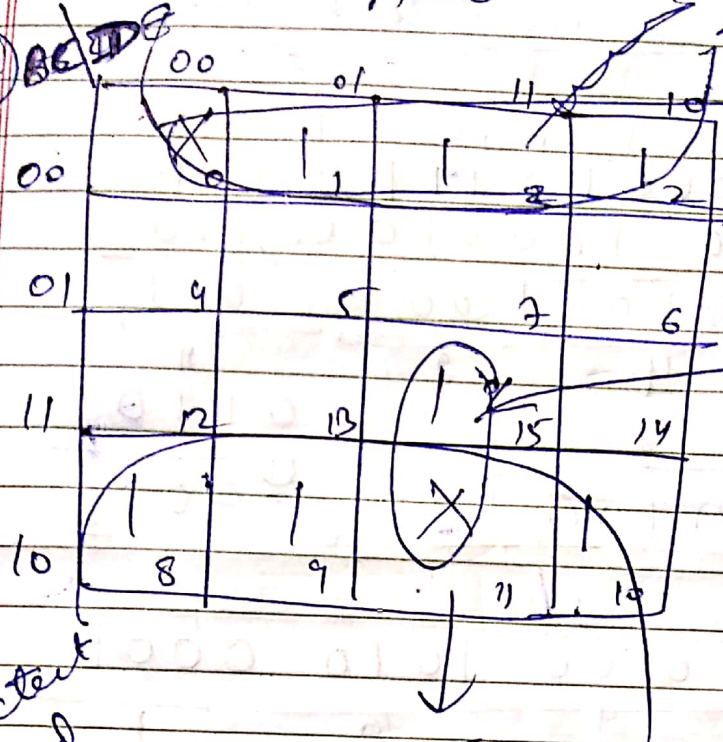 00 01 11 10
00 X 0 1 1 1 1 2
01 4 5 7 6
11 12 13 1 15 14
10 1 8 1 9 X 11 1 10